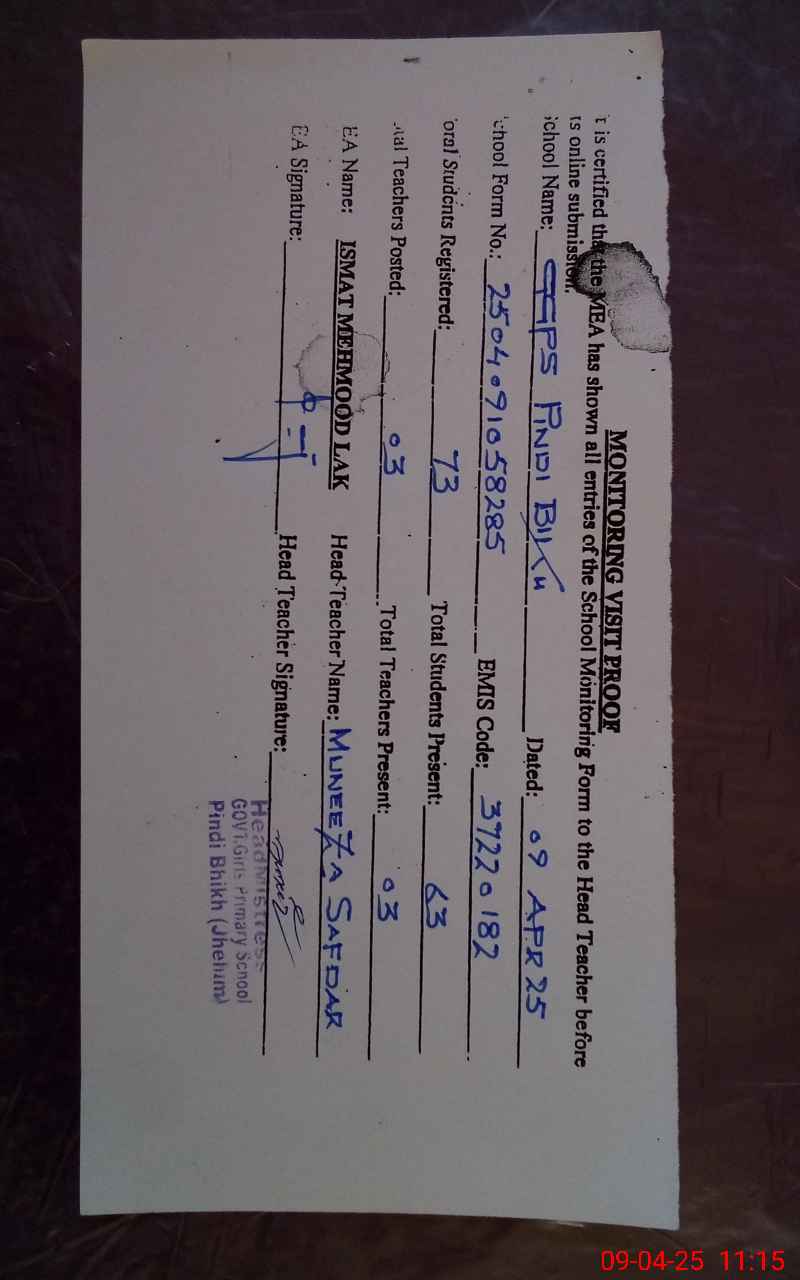 MONITORING VISIT PROOF
t is certified that the MEA has shown all entries of the School Monitoring Form to the Head Teacher before
ts online submission.
chool Name: GGPS PINDI BIKH Dated: 09 APR 25
chool Form No.: 2504091058285 EMIS Code: 37220182
otal Students Registered: 73 Total Students Present: 63
tal Teachers Posted: 03 Total Teachers Present: 03
EA Name: ISMAT MEHMOOD LAK Head Teacher Name: MUNEEZA SAFDAR
EA Signature: Head Teacher Signature:
Headmistress
GOVT. Girls Primary School
Pindi Bhikh (Jhelum)
09-04-25 11:15